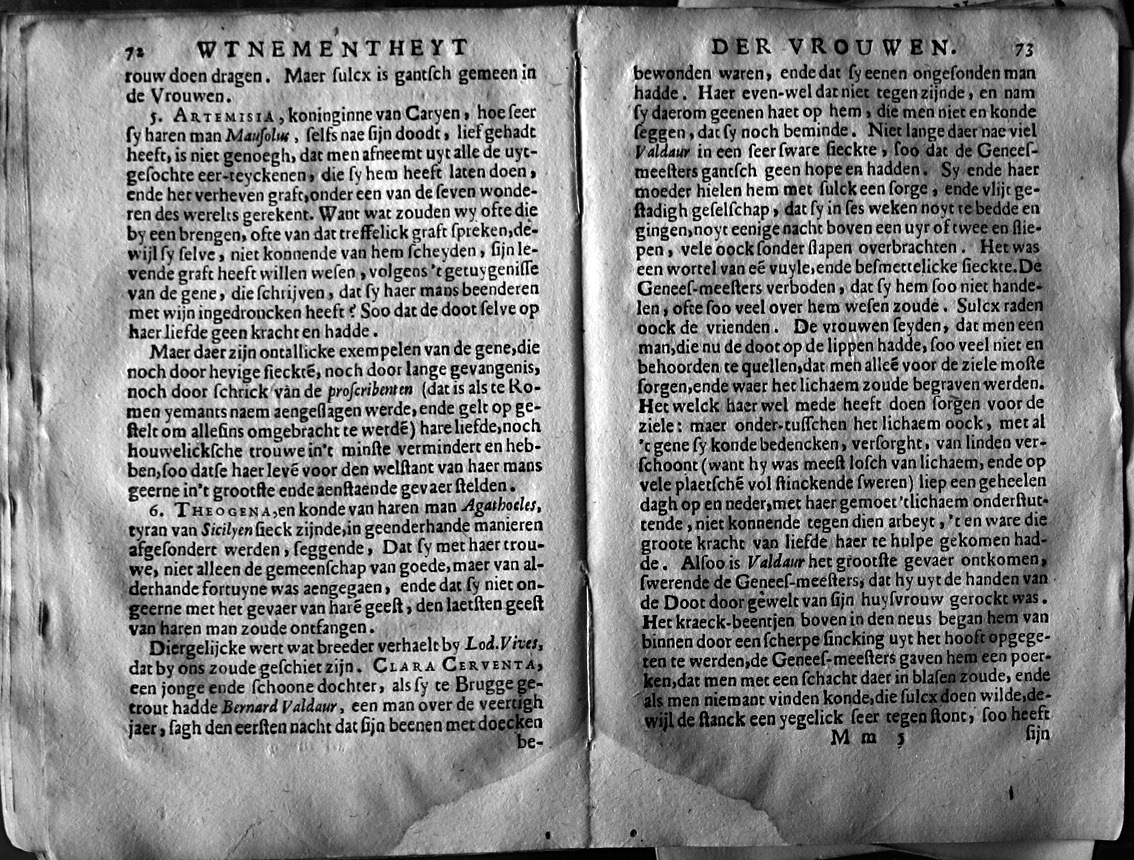 72 WTNEMENTHEYT
rouw doen dragen. Maer ſulcx is gantſch gemeen in
de Vrouwen.
5. ARTEMISIA, koninginne van Caryen, hoe ſeer
ſy haren man Mauſolus, ſelfs nae ſijn doodt, lief gehadt
heeft, is niet genoegh, dat men afneemt uyt alle de uyt-
geſochte eer-teyckenen, die ſy hem heeft laten doen,
ende het verheven graft, onder een van de ſeven wonde-
ren des werelts gerekent. Want wat zouden wy ofte die
by een brengen, ofte van dat treffelick graft ſpreken, de-
wijl ſy ſelve, niet konnende van hem ſcheyden, ſijn le-
vende graft heeft willen weſen, volgens 't getuygeniſſe
van de gene, die ſchrijven, dat ſy haer mans beenderen
met wijn ingedroncken heeft? Soo dat de doot ſelve op
haer liefde geen kracht en hadde.
Maer daer zijn ontallicke exempelen van de gene, die
noch door hevige ſiecktē, noch door lange gevangenis,
noch door ſchrick van de proſcribenten (dat is als te Ro-
men yemants naem aengeſlagen werde, ende gelt op ge-
ſtelt om alleſins omgebracht te werdē) hare liefde, noch
houwelickſche trouwe in't minſte vermindert en heb-
ben, ſoo datſe haer levē voor den welſtant van haer mans
geerne in't grootſte ende aenſtaende gevaer ſtelden.
6. THEOGENA, en konde van haren man Agathocles,
tyran van Sicilyen ſieck zijnde, in geenderhande manieren
afgeſondert werden, ſeggende, Dat ſy met haer trou-
we, niet alleen de gemeenſchap van goede, maer van al-
derhande fortuyne was aengegaen, ende dat ſy niet on-
geerne met het gevaer van harē geeſt, den laetſten geeſt
van haren man zoude ontfangen.
Diergelijcke wert wat breeder verhaelt by Lod. Vives,
dat by ons zoude geſchiet zijn. CLARA CERVENTA,
een jonge ende ſchoone dochter, als ſy te Brugge ge-
trout hadde Bernard Valdaur, een man over de veertigh
jaer, ſagh den eerſten nacht dat ſijn beenen met doecken
be-
DER VROUWEN. 73
bewonden waren, ende dat ſy eenen ongeſonden man
hadde. Haer even-wel dat niet tegen zijnde, en nam
ſy daerom geenen haet op hem, die men niet en konde
ſeggen, dat ſy noch beminde. Niet lange daer nae viel
Valdaur in een ſeer ſware ſieckte, ſoo dat de Geneeſ-
meeſters gantſch geen hope en hadden. Sy ende haer
moeder hielen hem met ſulck een ſorge, ende vlijt ge-
ſtadigh geſelſchap, dat ſy in ſes weken noyt te bedde en
gingen, noyt eenige nacht boven een uyr of twee en ſlie-
pen, vele oock ſonder ſlapen overbrachten. Het was
een wortel van eē vuyle, ende beſmettelicke ſieckte. De
Geneeſ-meeſters verboden, dat ſy hem ſoo niet hande-
len, ofte ſoo veel over hem weſen zoude. Sulcx raden
oock de vrienden. De vrouwen ſeyden, dat men een
man, die nu de doot op de lippen hadde, ſoo veel niet en
behoorden te quellen, dat men alleē voor de ziele moſte
ſorgen, ende waer het lichaem zoude begraven werden.
Het welck haer wel mede heeft doen ſorgen voor de
ziele: maer onder-tuſſchen het lichaem oock, met al
't gene ſy konde bedencken, verſorght, van linden ver-
ſchoont (want hy was meeſt loſch van lichaem, ende op
vele plaetſchē vol ſtinckende ſweren) liep een geheelen
dagh op en neder, met haer gemoet 't lichaem onderſtut-
tende, niet konnende tegen dien arbeyt, 't en ware die
groote kracht van liefde haer te hulpe gekomen had-
de. Alſoo is Valdaur het grootſte gevaer ontkomen,
ſwerende de Geneeſ-meeſters, dat hy uyt de handen van
de Doot door gewelt van ſijn huyſvrouw gerockt was.
Het kraeck-beentjen boven in den neus began hem van
binnen door een ſcherpe ſincking uyt het hooft opgege-
ten te werden, de Geneeſ-meeſters gaven hem een poer-
ken, dat men met een ſchacht daer in blaſen zoude, ende
als men niemant vinden konde, die ſulcx doen wilde, de-
wijl de ſtanck een yegelick ſeer tegen ſtont, ſoo heeft
M m 5 ſijn